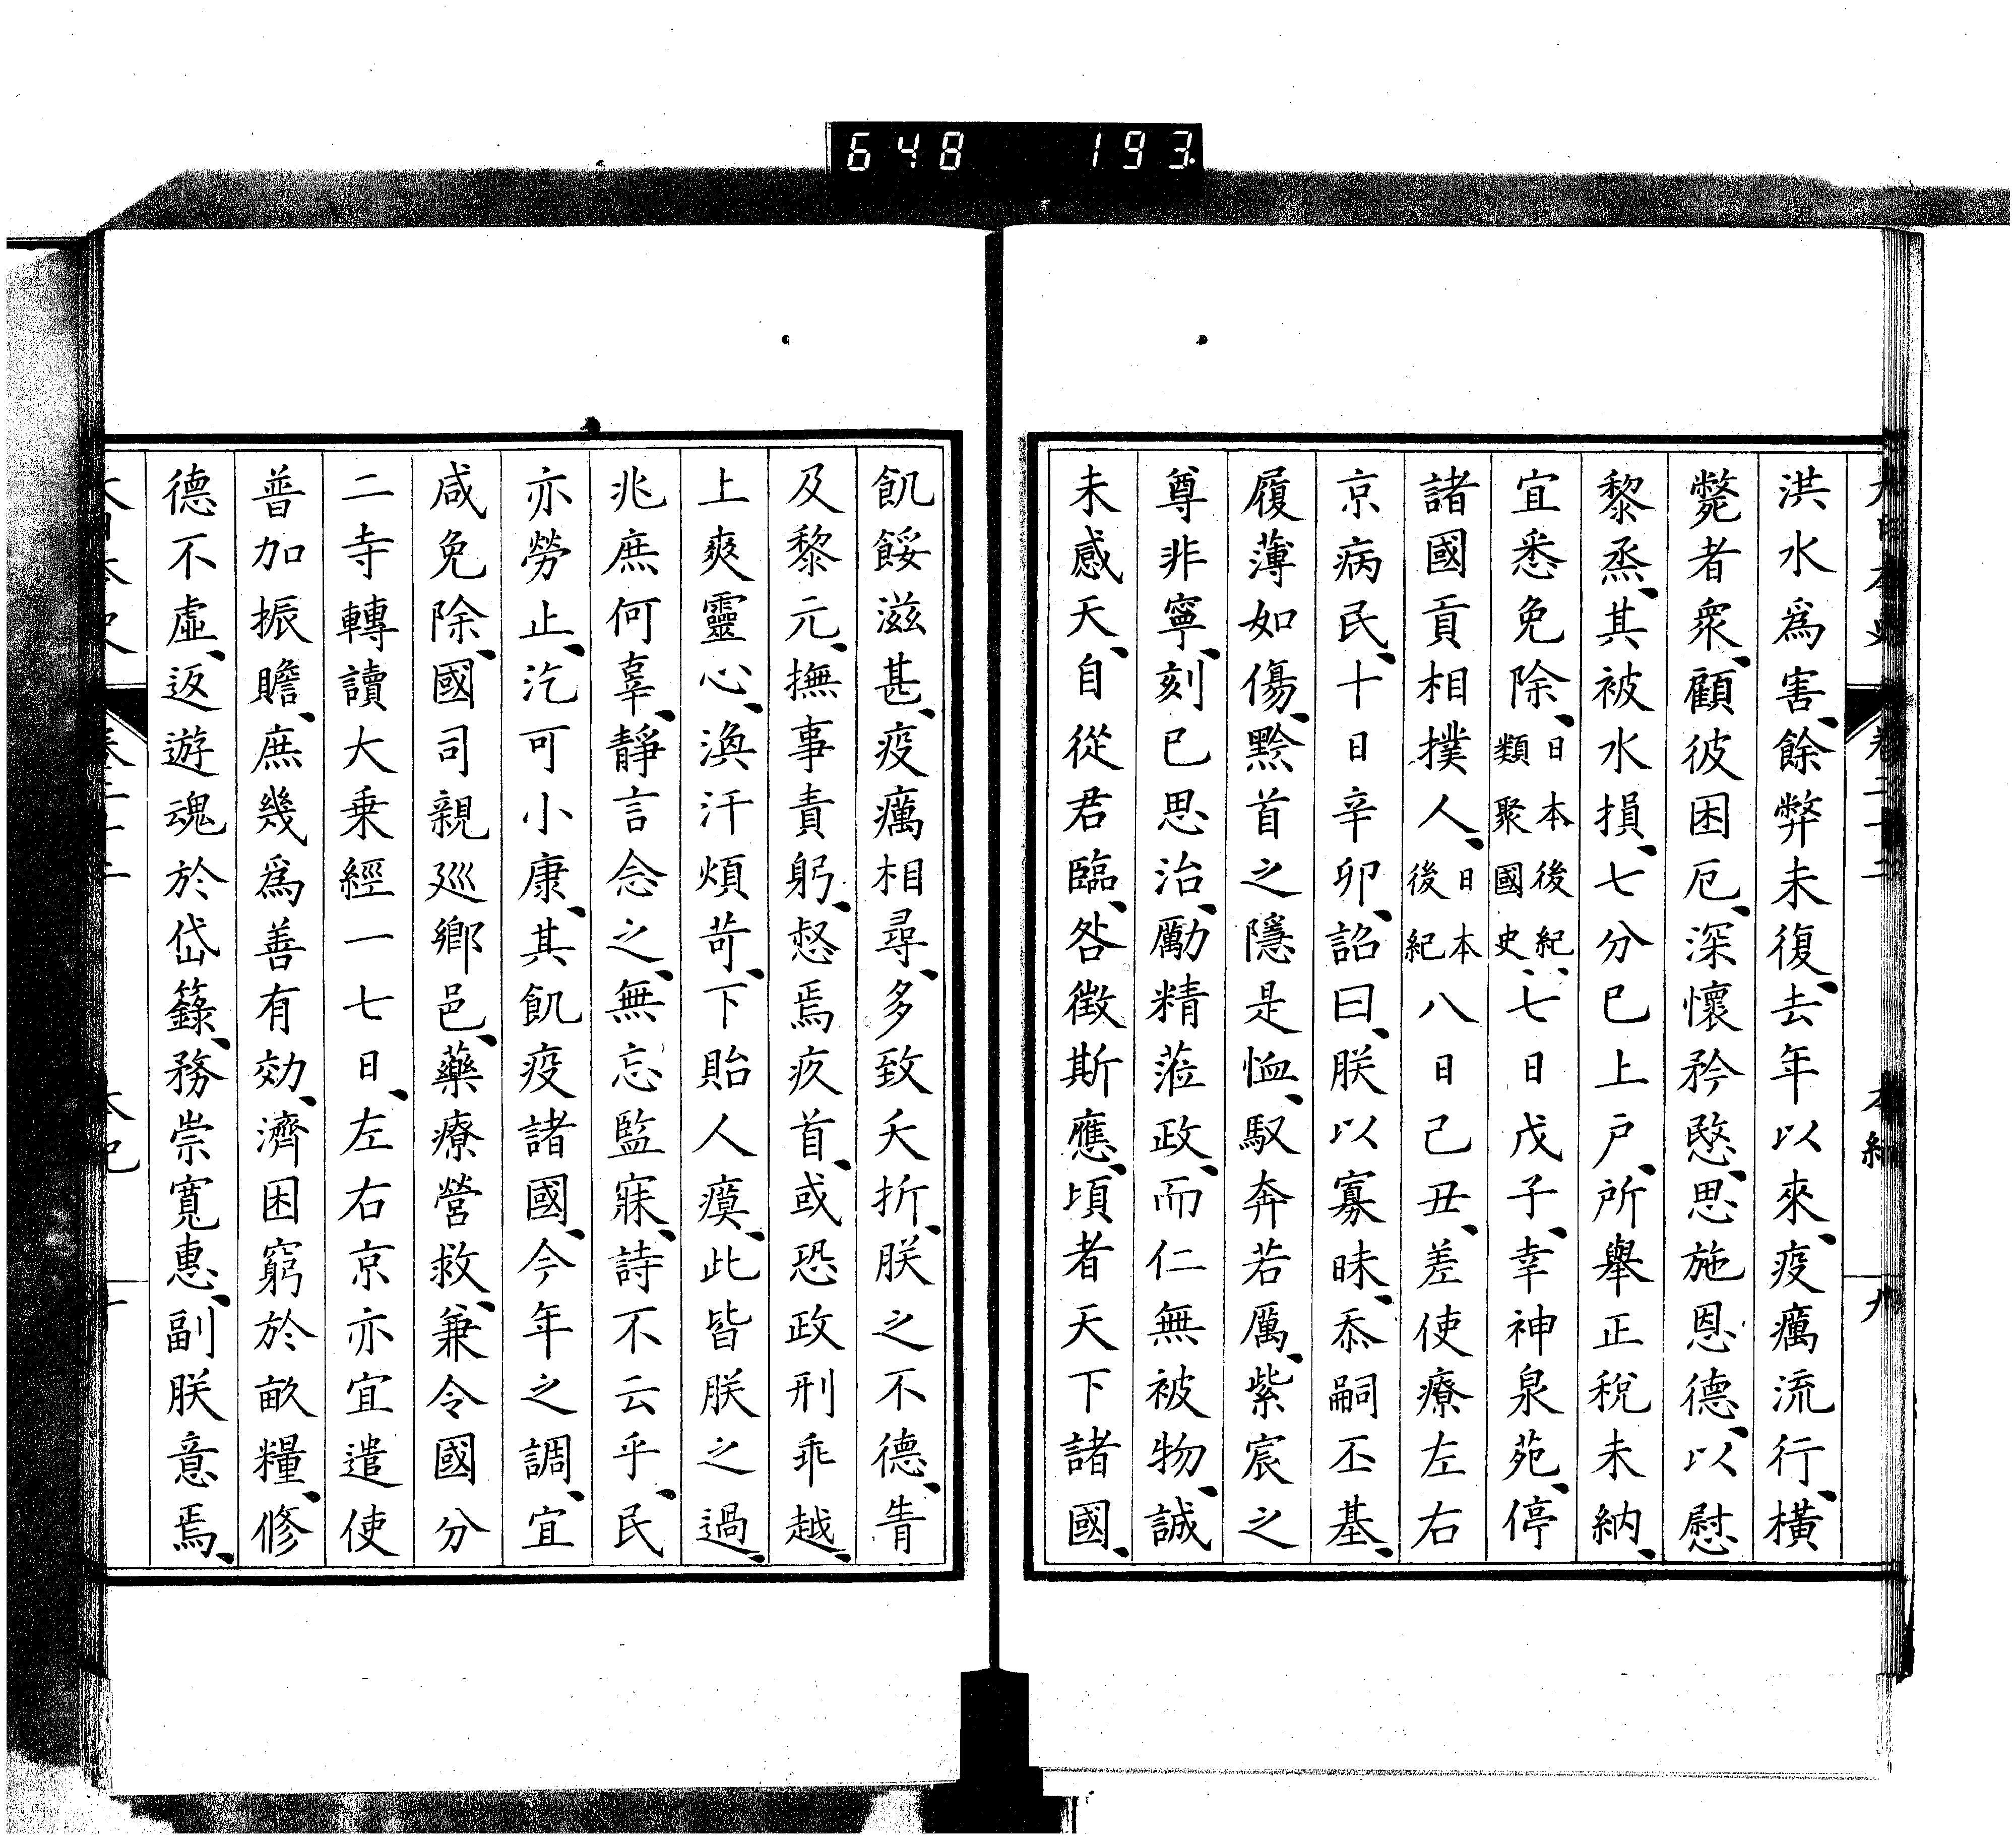 648 193
洪水爲害、餘弊未復、去年以來、疫癘流行、橫
斃者衆、顧彼困厄、深懷矜愍、思施恩德、以慰
黎烝、其被水損、七分已上戶、所舉正稅未納、
宜悉免除、日本後紀、類聚國史、七日戊子、幸神泉苑、停
諸國貢相撲人、日本後紀八日己丑、差使療左右
京病民、十日辛卯、詔曰、朕以寡昧、忝嗣丕基、
履薄如傷、黔首之隱是恤、馭奔若厲、紫宸之
尊非寧、刻已思治、勵精蒞政、而仁無被物、誠
未感天、自從君臨、咎徵斯應、頃者天下諸國、
飢餒滋甚、疫癘相尋、多致夭折、朕之不德、眚
及黎元、撫事責躬、怒焉疚首、或恐政刑乖越、
上爽靈心、渙汗煩苛、下貽人瘼、此皆朕之過、
兆庶何辜、靜言念之、無忘監寐、詩不云乎、民
亦勞止、汔可小康、其飢疫諸國、今年之調、宜
咸免除、國司親巡鄉邑、藥療營救、兼令國分
二寺轉讀大乗經一七日、左右京亦宜遣使
普加振贍、庶幾爲善有効、濟困窮於畝糧、修
德不虛、返遊魂於岱籙、務崇寬惠、副朕意焉、